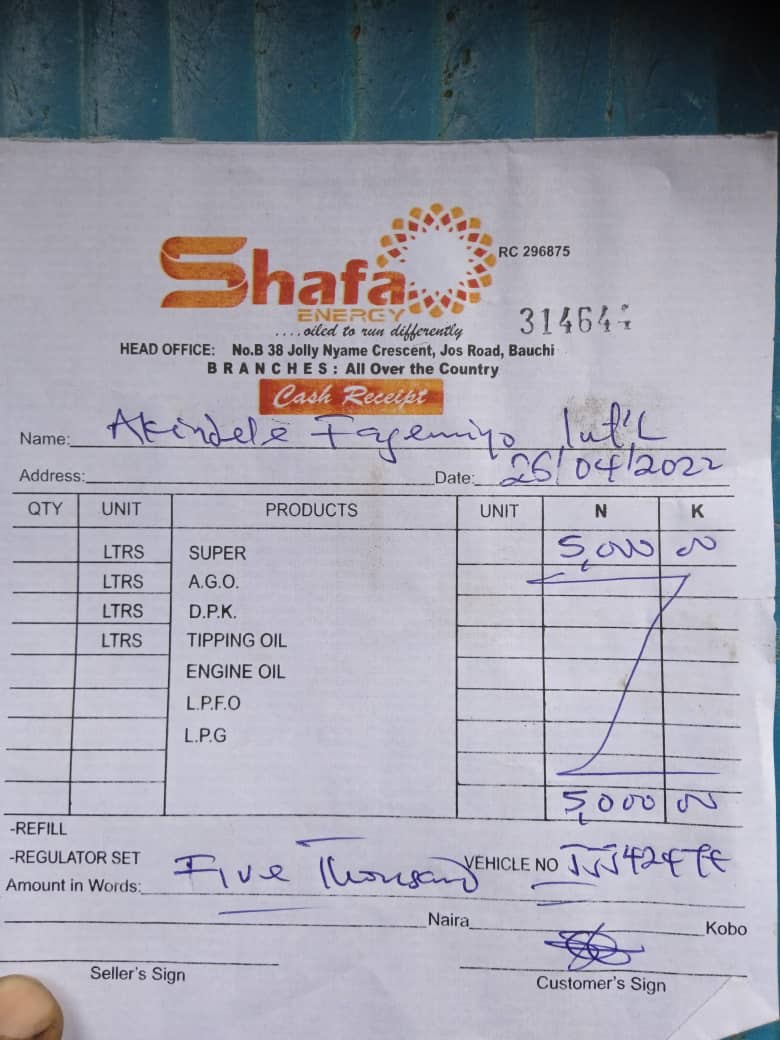 Shafa
ENERGY
RC 296875
....oiled to run differently
31464
HEAD OFFICE: No.B 38 Jolly Nyame Crescent, Jos Road, Bauchi
BRANCHES: All Over the Country
Cash Receipt
Name: Akindele Fagemiyo Int'L
Address: Date: 26/04/2022
QTY UNIT PRODUCTS UNIT N K
LTRS SUPER 5,000 00
LTRS A.G.O.
LTRS D.P.K.
LTRS TIPPING OIL
ENGINE OIL
L.P.F.O
L.P.G
5,000 00
-REFILL
-REGULATOR SET VEHICLE NO
Amount in Words: Five Thousand
Naira Kobo
Seller's Sign Customer's Sign